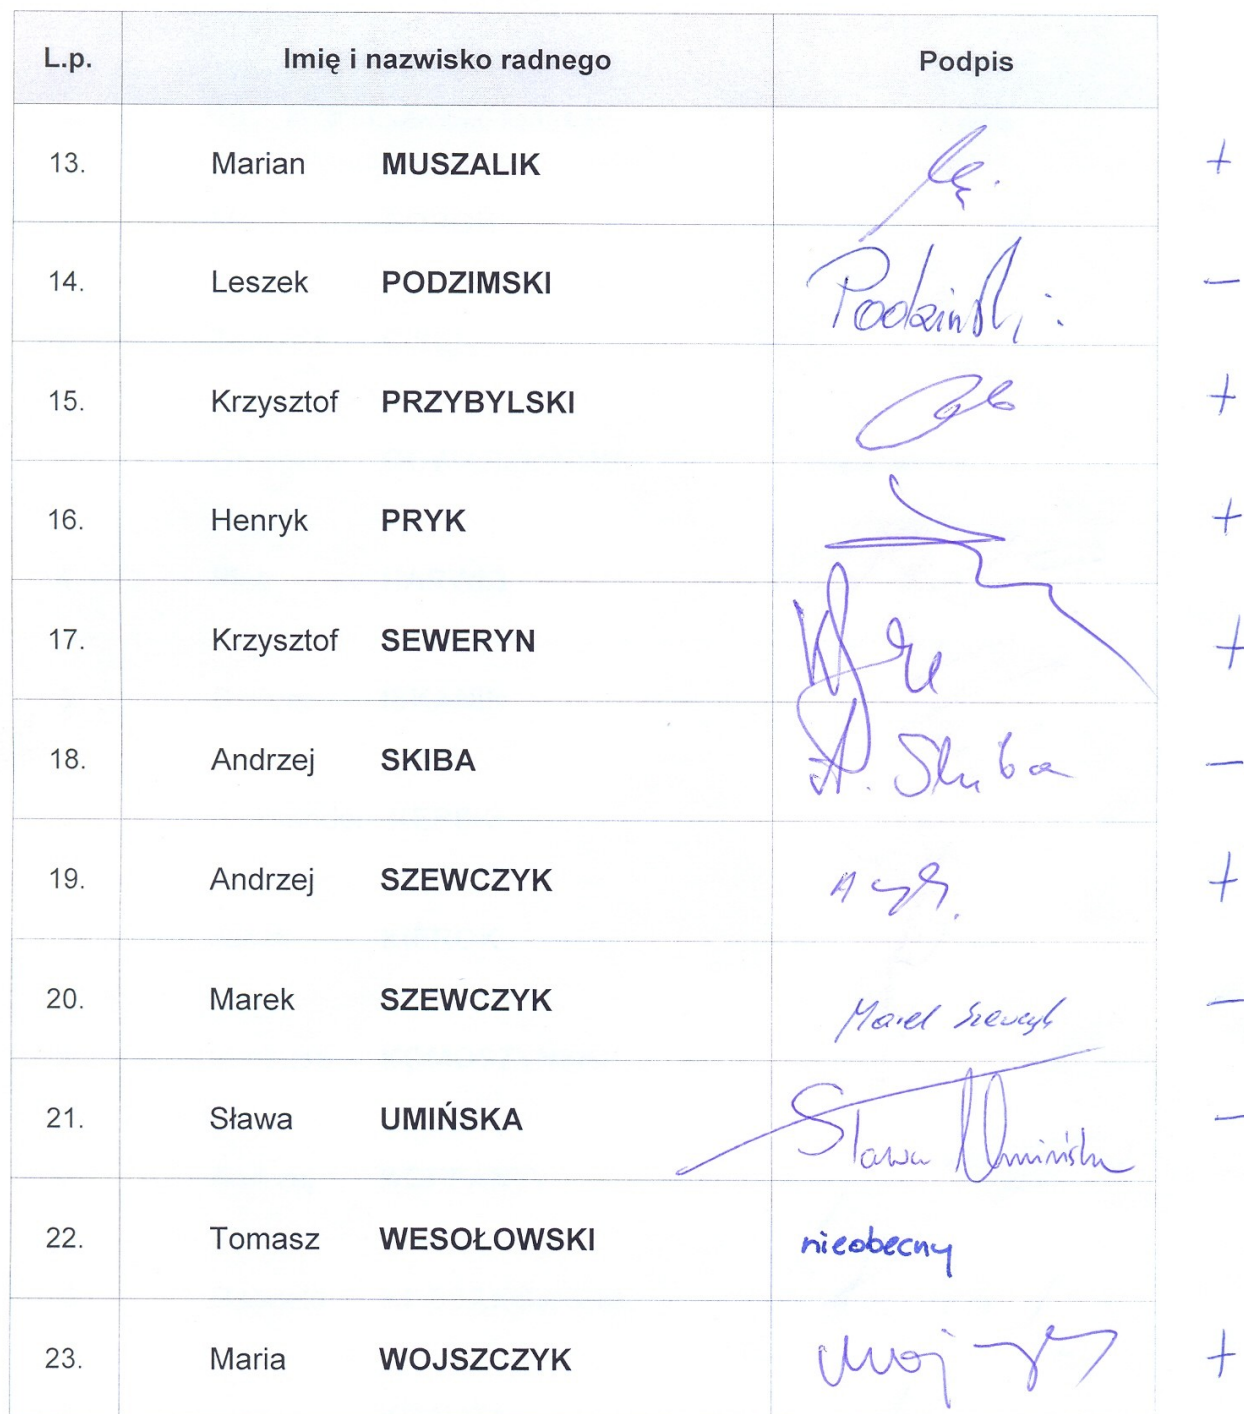 L.p. Imię i nazwisko radnego Podpis
13. Marian MUSZALIK +
14. Leszek PODZIMSKI Podzimski −
15. Krzysztof PRZYBYLSKI +
16. Henryk PRYK +
17. Krzysztof SEWERYN +
18. Andrzej SKIBA A. Skiba −
19. Andrzej SZEWCZYK +
20. Marek SZEWCZYK Marek Szewczyk −
21. Sława UMIŃSKA Sława Umińska −
22. Tomasz WESOŁOWSKI nieobecny
23. Maria WOJSZCZYK +